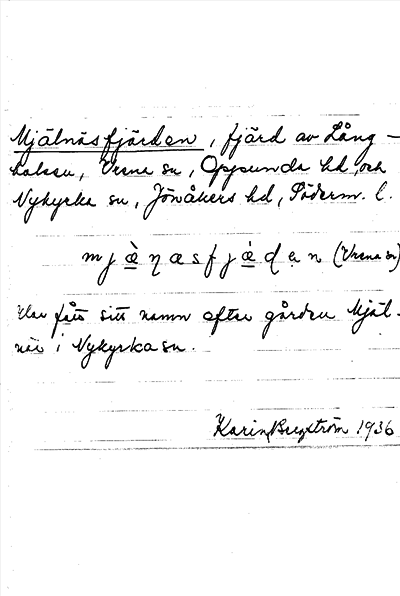 Mjälnäsfjärden, fjärd av Lång-
halsen, Vrena sn, Oppunda hd, och
Nykyrka sn, Jönåkers hd, Söderm. l.
mjæ̀ηæsfjǽdẹn (Vrena sn)
Har fått sitt namn efter gården Mjäl-
näs i Nykyrka sn.
Karin 1936